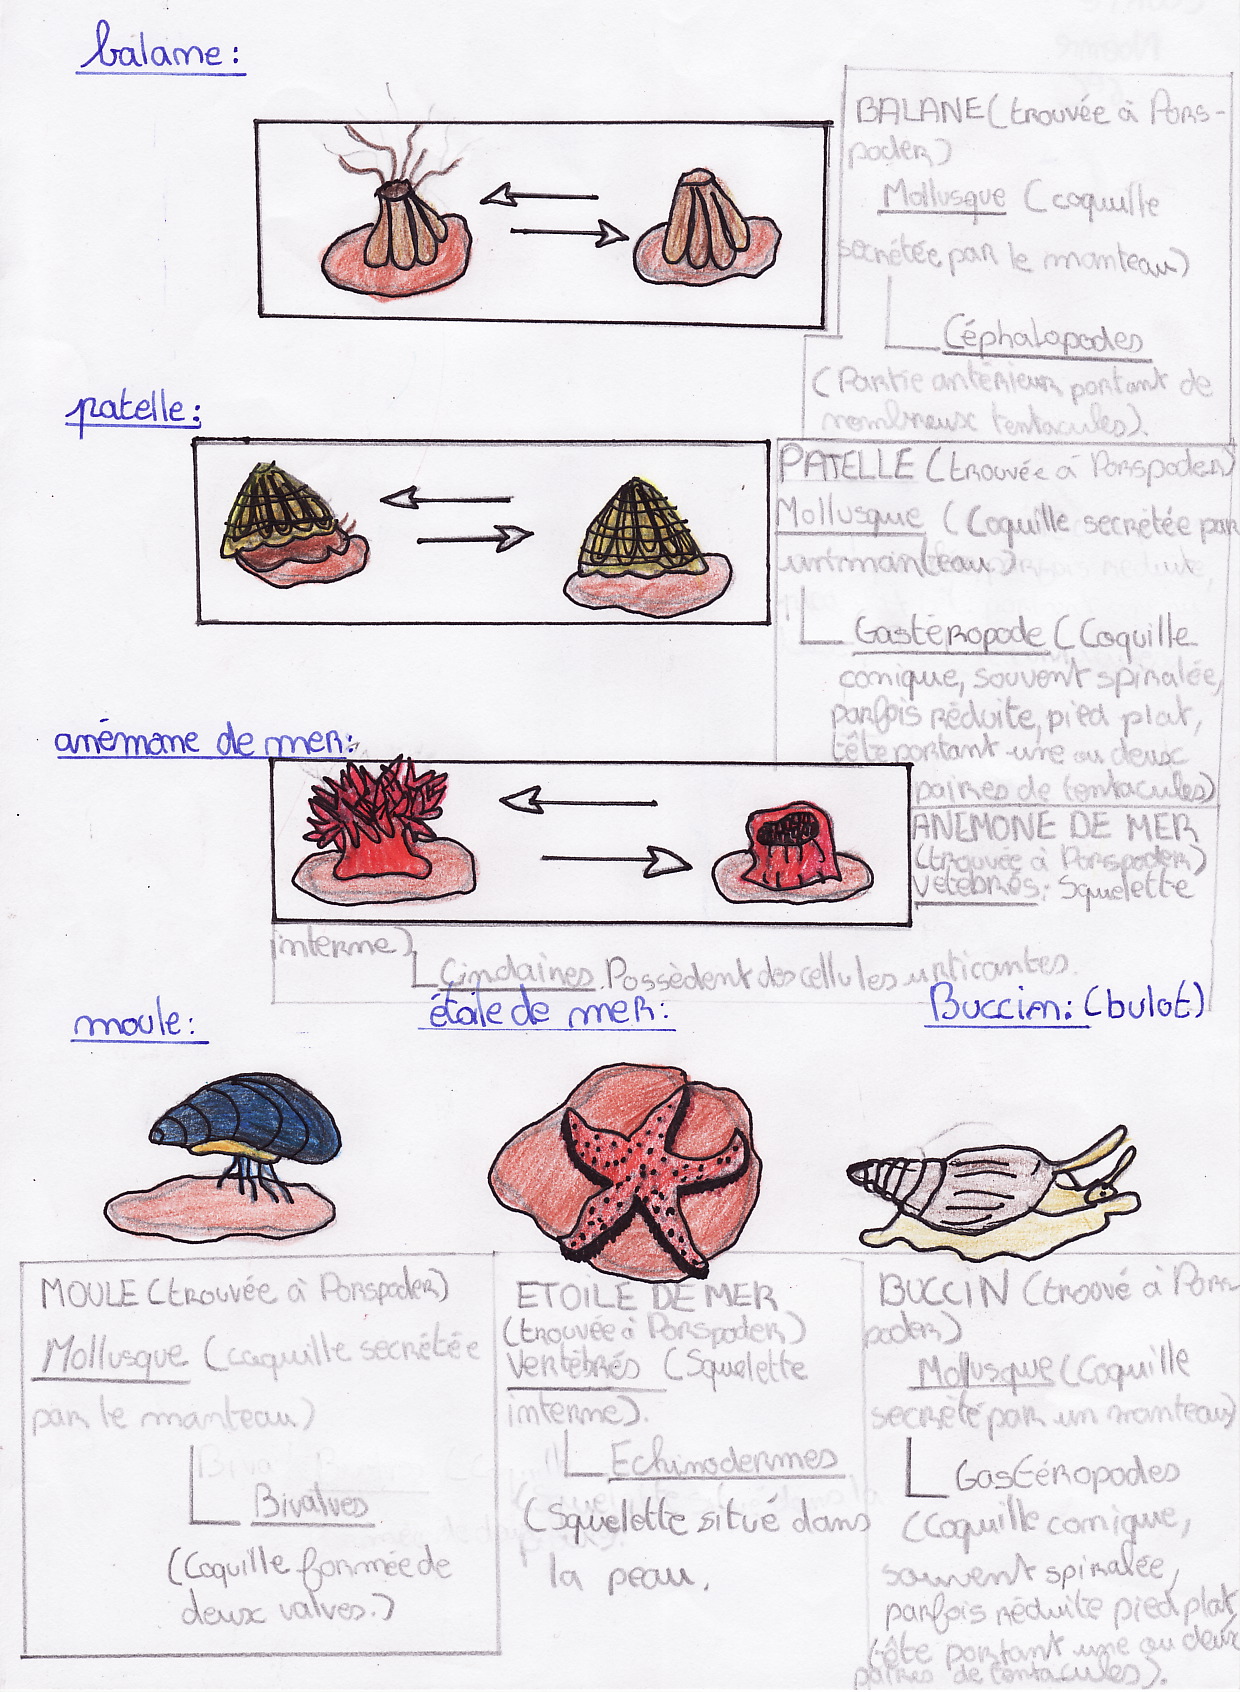 balane :
BALANE (trouvée à Pors-
poder)
Mollusque (coquille
secrétée par le manteau)
Céphalopodes
(Partie antérieur portant de
nombreux tentacules).
patelle :
PATELLE (trouvée à Porspoder)
Mollusque (Coquille secrétée par
un manteau)
Gastéropode (Coquille
conique, souvent spiralée,
parfois réduite, pied plat,
tête portant une ou deux
paires de tentacules)
anémone de mer :
ANEMONE DE MER
(trouvée à Porspoder)
Vetébrés : Squelette
interne)
Cindaires. Possèdent des cellules urticantes.
moule :
étoile de mer :
Buccin : (bulot)
MOULE (trouvée à Porspoder)
Mollusque (coquille secrétée
par le manteau)
Bivalves
(Coquille formée de
deux valves.)
ETOILE DE MER
(trouvée à Porspoder)
Vertébrés (Squelette
interne).
Echinodermes
(Squelette situé dans
la peau.
BUCCIN (trouvé à Pors
poder)
Mollusque (Coquille
secrété par un manteau)
Gastéropodes
(Coquille conique,
souvent spiralée,
parfois réduite pied plat,
tête portant une ou deux
paires de tentacules).